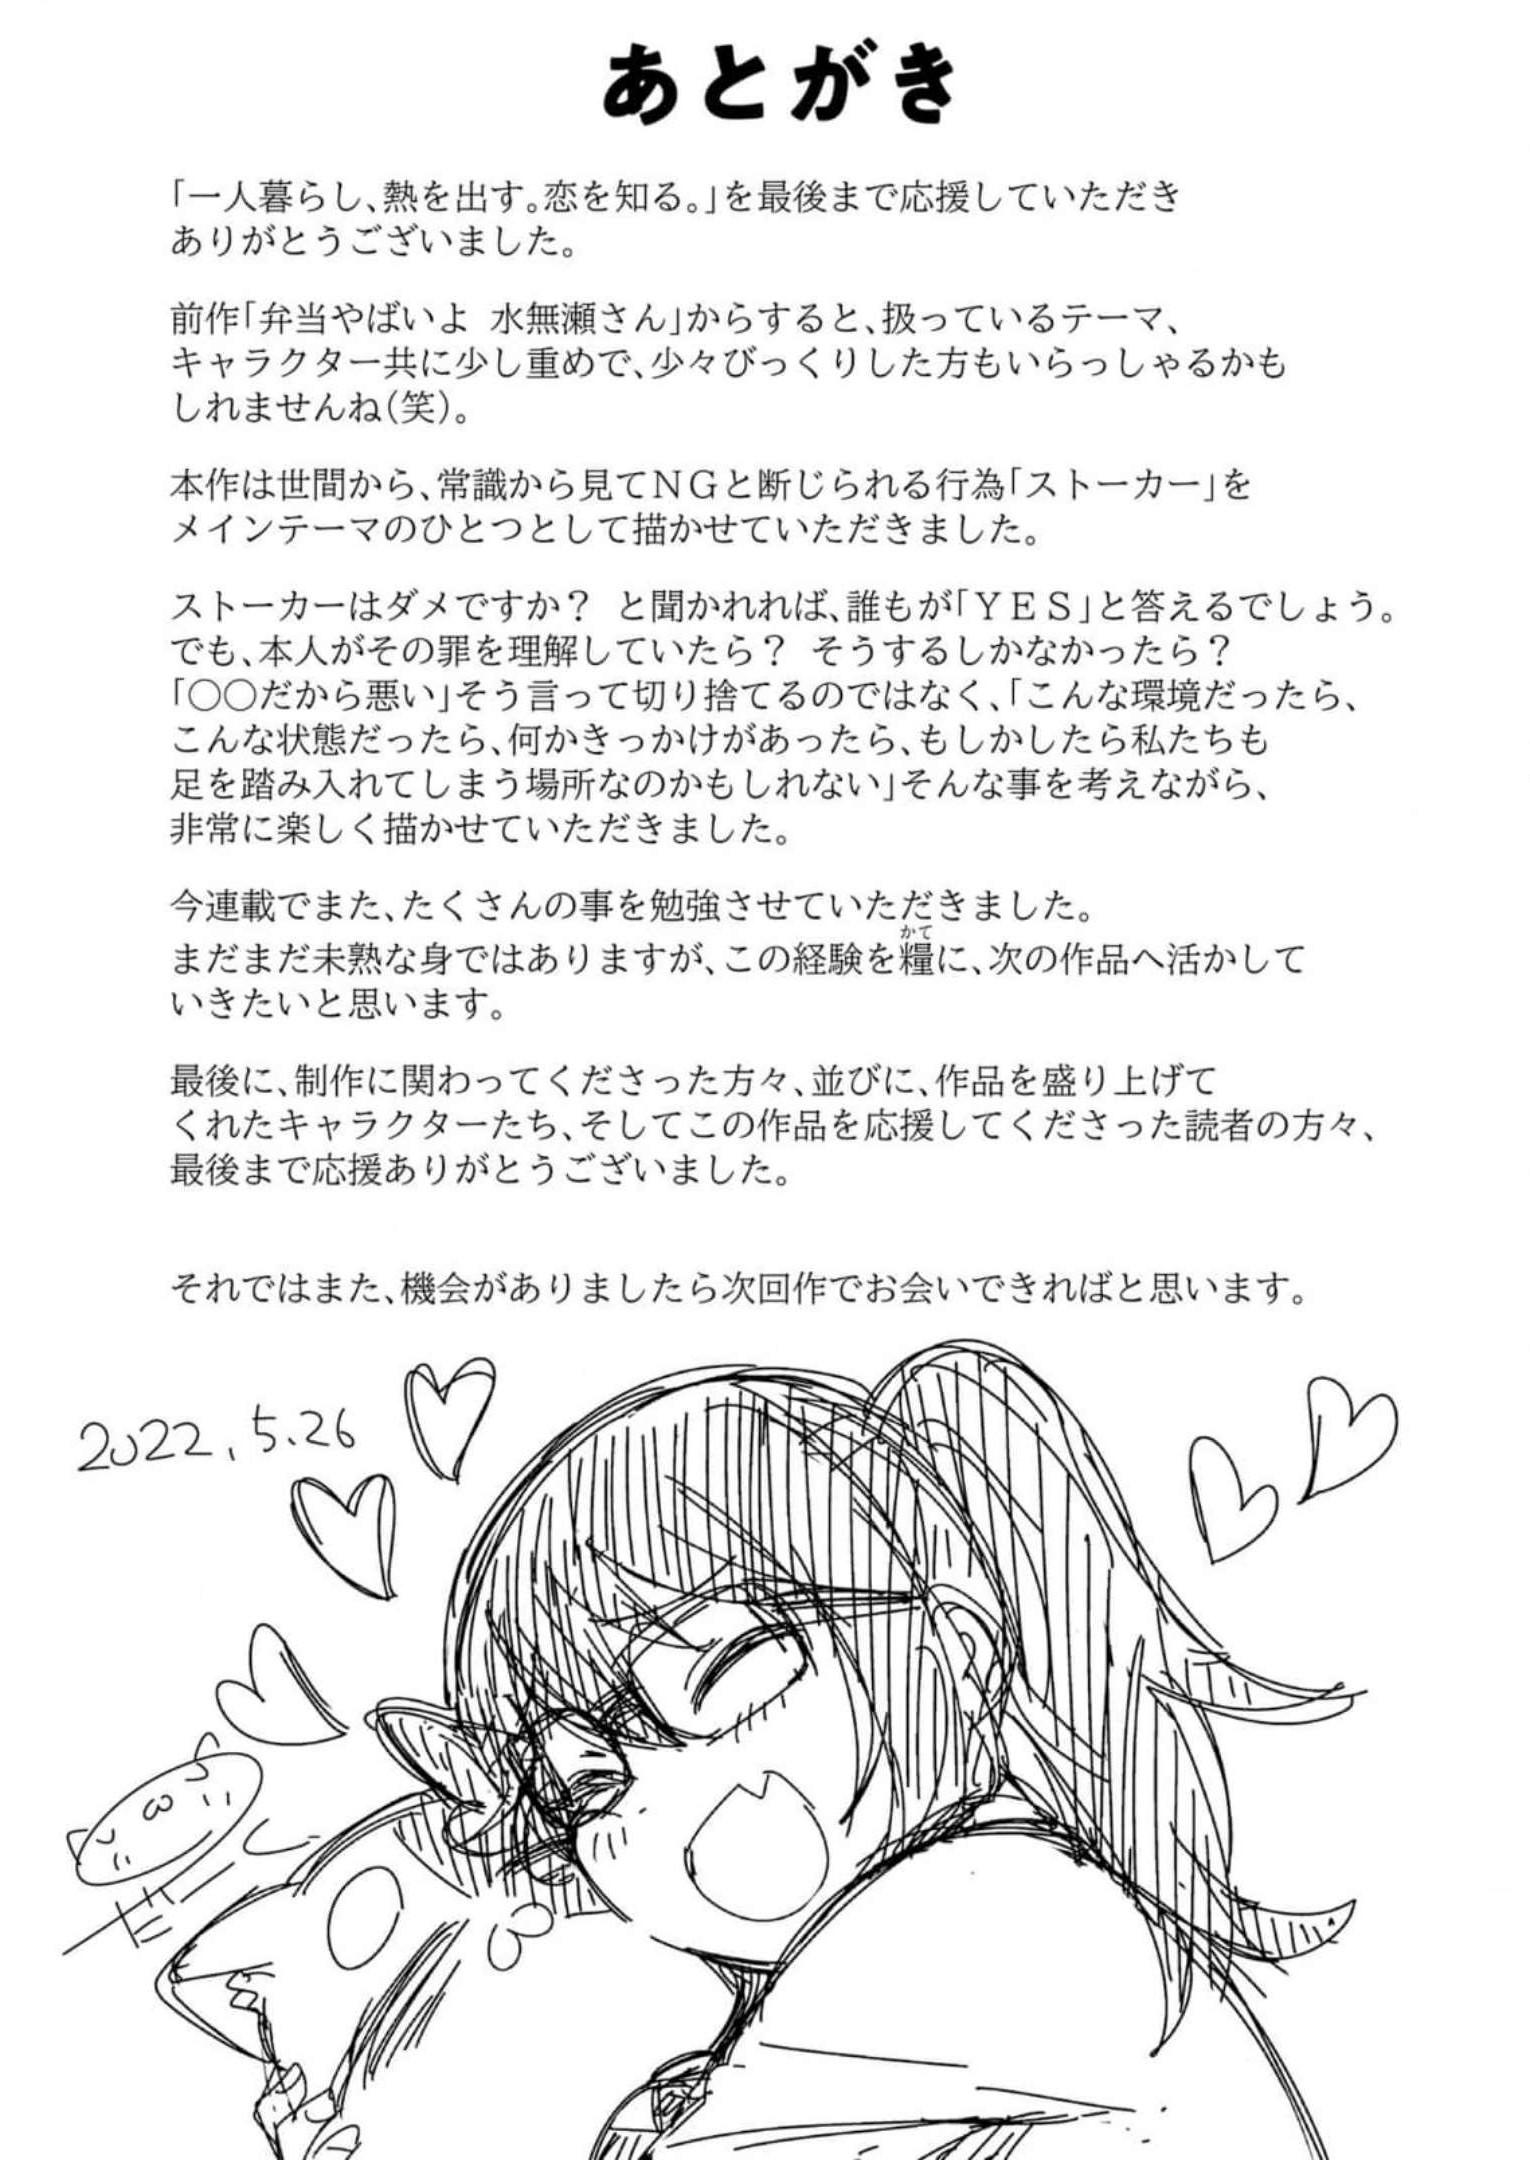 あとがき
「一人暮らし、熱を出す。恋を知る。」を最後まで応援していただき
ありがとうございました。
前作「弁当やばいよ 水無瀬さん」からすると、扱っているテーマ、
キャラクター共に少し重めで、少々びっくりした方もいらっしゃるかも
しれませんね(笑)。
本作は世間から、常識から見てNGと断じられる行為「ストーカー」を
メインテーマのひとつとして描かせていただきました。
ストーカーはダメですか? と聞かれれば、誰もが「YES」と答えるでしょう。
でも、本人がその罪を理解していたら? そうするしかなかったら?
「○○だから悪い」そう言って切り捨てるのではなく、「こんな環境だったら、
こんな状態だったら、何かきっかけがあったら、もしかしたら私たちも
足を踏み入れてしまう場所なのかもしれない」そんな事を考えながら、
非常に楽しく描かせていただきました。
今連載でまた、たくさんの事を勉強させていただきました。
かて
まだまだ未熟な身ではありますが、この経験を糧に、次の作品へ活かして
いきたいと思います。
最後に、制作に関わってくださった方々、並びに、作品を盛り上げて
くれたキャラクターたち、そしてこの作品を応援してくださった読者の方々、
最後まで応援ありがとうございました。
それではまた、機会がありましたら次回作でお会いできればと思います。
2022.5.26